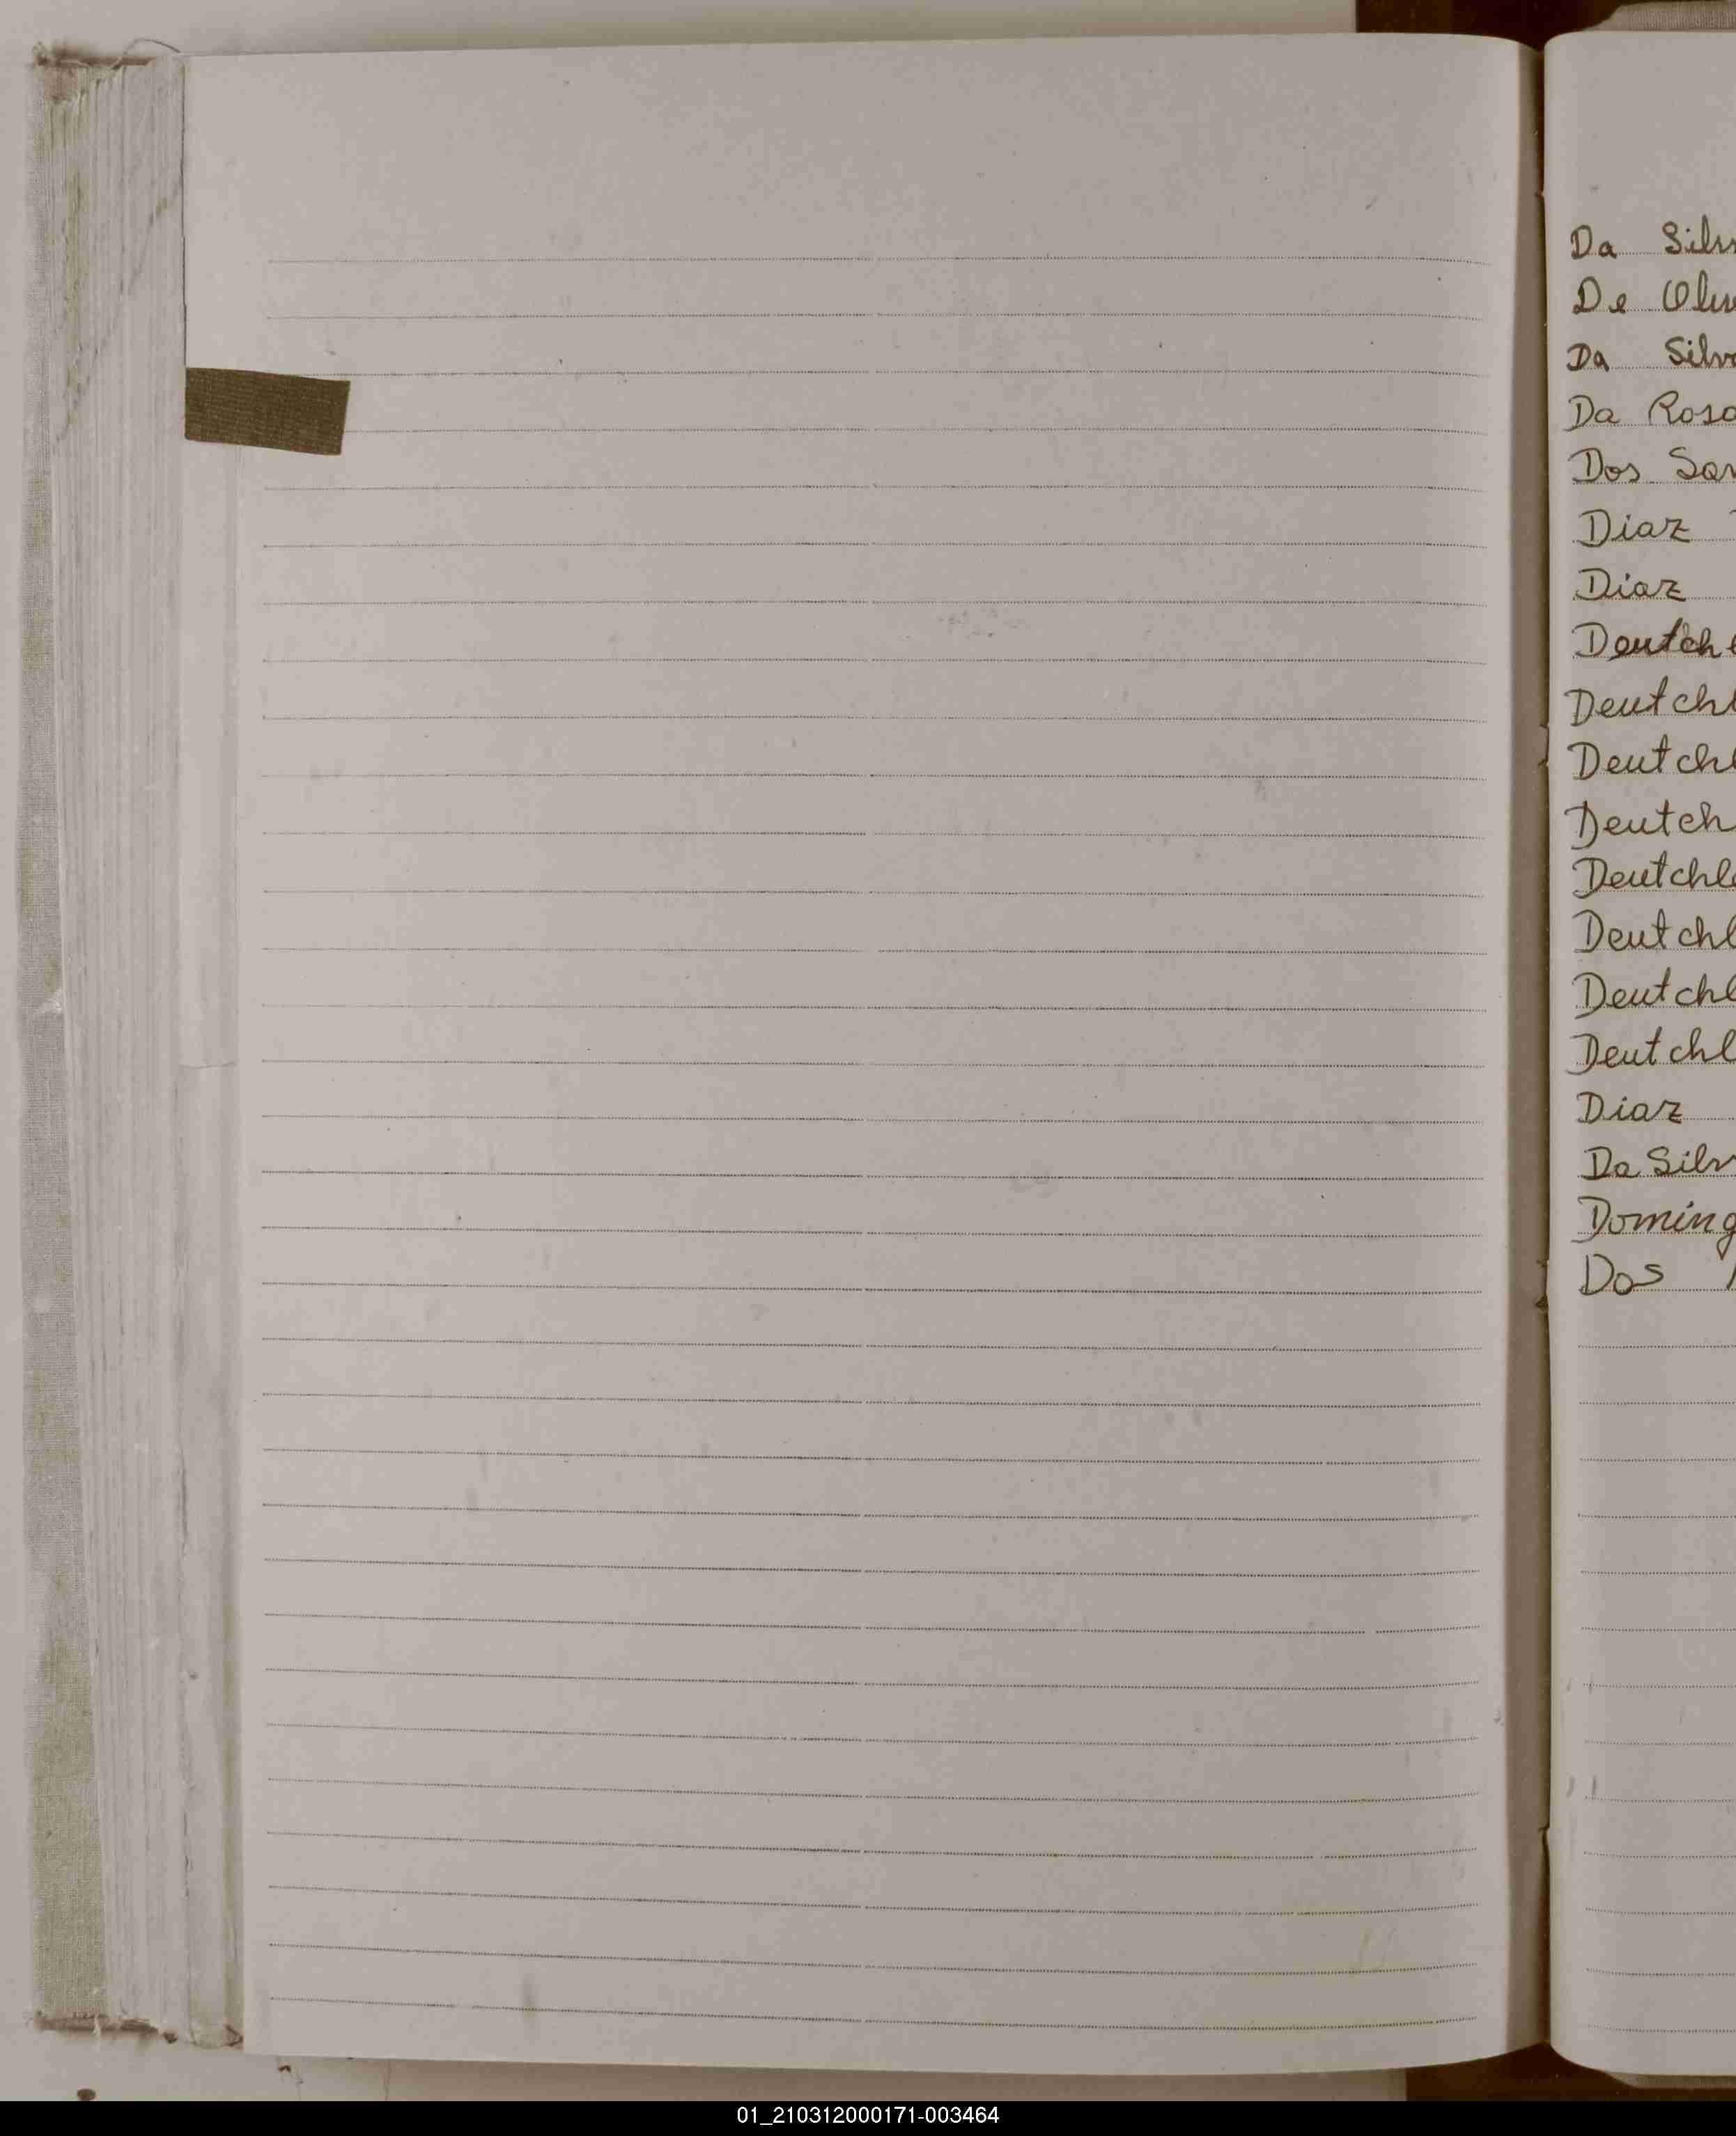 Da Silv
De Olive
Da Silva
Da Rosa
Dos San
Diaz
Diaz
Deutche
Deutchl
Deutchl
Deutch
Deutchle
Deutchl
Deutchl
Deutchl
Diaz
Da Silv
Doming
Dos
01_210312000171-003464